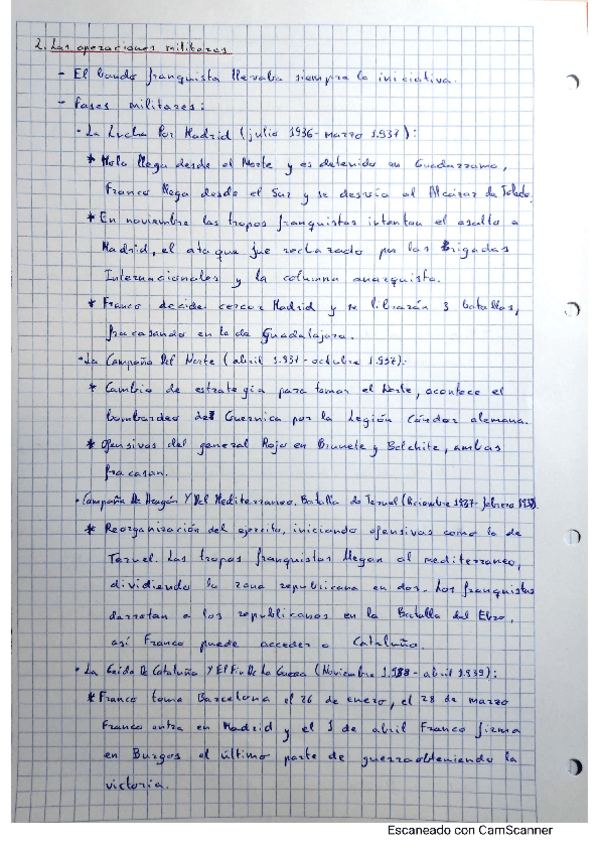 2. Las operaciones militares
- El bando franquista llevaba siempre la iniciativa.
- Fases militares:
· La Lucha Por Madrid (julio 1936 - marzo 1.937):
* Mola llega desde el Norte y es detenido en Guadarrama,
Franco llega desde el Sur y se desvía al Alcázar de Toledo.
* En noviembre las tropas franquistas intentan el asalto a
Madrid, el ataque fue rechazado por las Brigadas
Internacionales y la columna anarquista.
* Franco decide cercar Madrid y se librarán 3 batallas,
fracasando en la de Guadalajara.
· La Campaña Del Norte (abril 1.937 - octubre 1.937):
* Cambio de estrategia para tomar el Norte, acontece el
bombardeo de Guernica por la Legión Cóndor alemana.
* Ofensivas del general Rojo en Brunete y Belchite, ambas
fracasan.
· Campaña De Aragón Y Del Mediterraneo. Batalla de Teruel (Diciembre 1937- febrero 1938).
* Reorganización del ejercito, iniciando ofensivas como la de
Teruel. Las tropas franquistas llegan al mediterraneo,
dividiendo la zona republicana en dos. Los franquistas
derrotan a los republicanos en la Batalla del Ebro,
así Franco puede acceder a Cataluña.
· La Caída De Cataluña Y El Fin De La Guerra (Noviembre 1.938 - abril 1.939):
* Franco toma Barcelona el 26 de enero, el 28 de marzo
Franco entra en Madrid y el 1 de abril Franco firma
en Burgos el último parte de guerra obteniendo la
victoria.
Escaneado con CamScanner